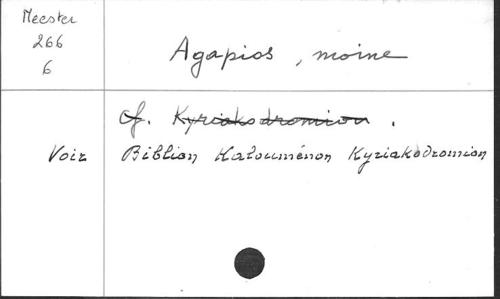 Meester
266
6
Agapios, moine
cf. Kyriakodromion.
Voir Biblion Kaloumenon Kyriakodromion